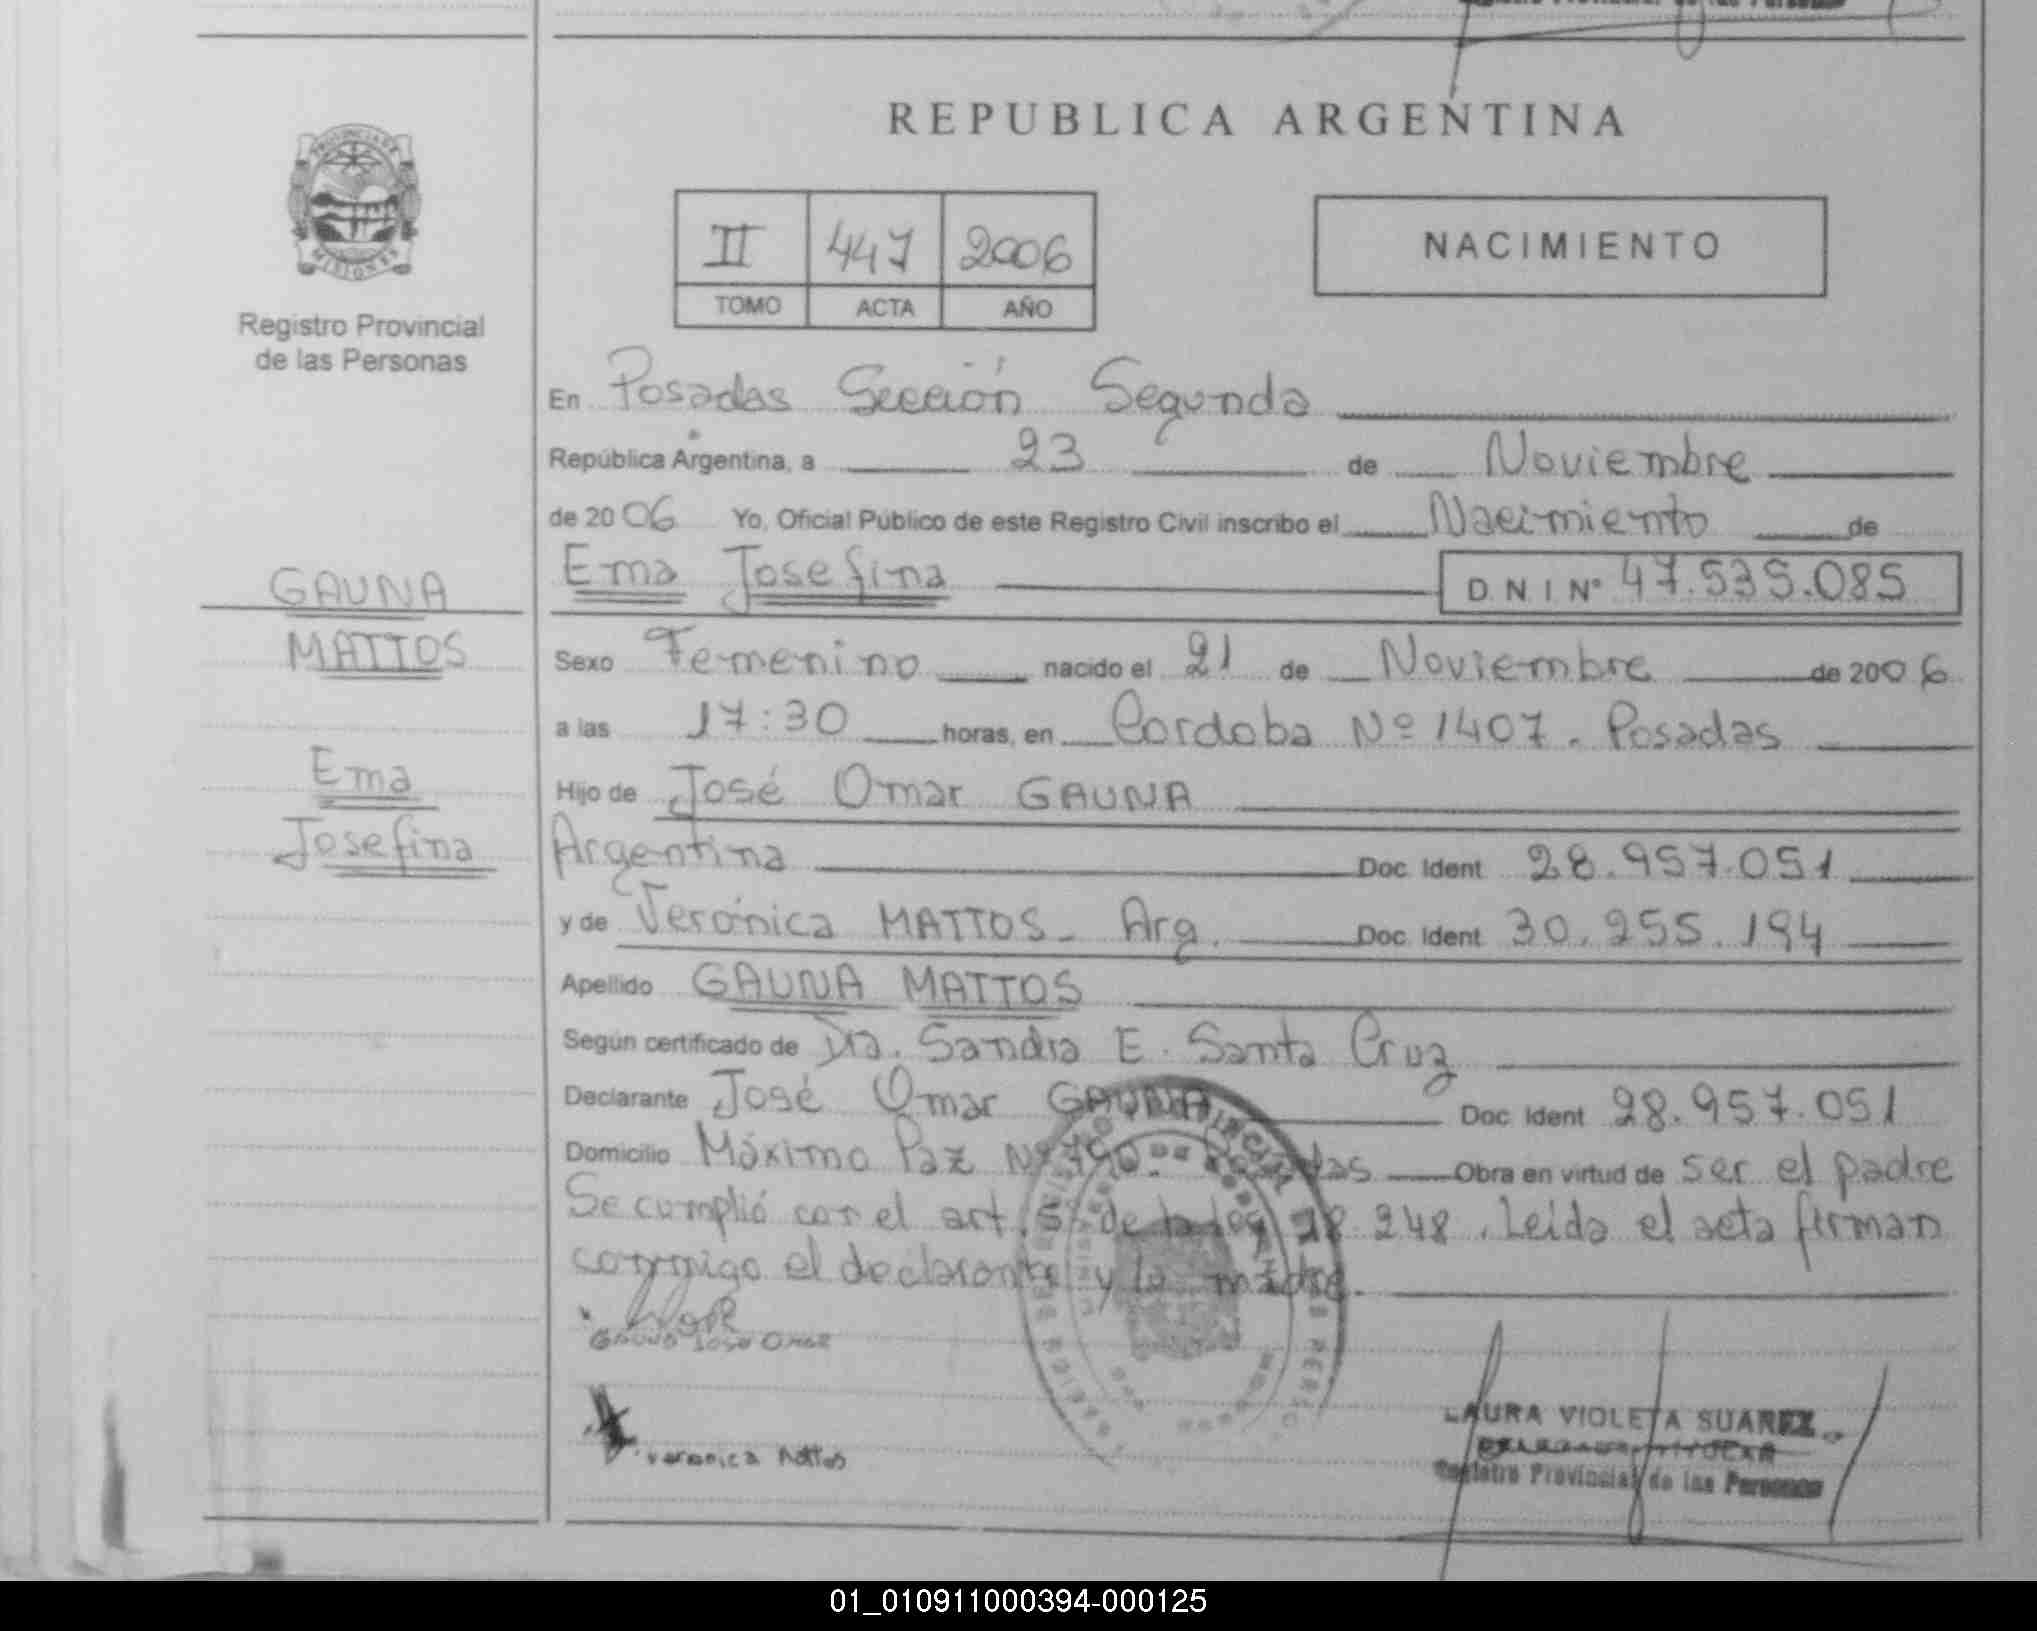 REPUBLICA ARGENTINA
PROVINCIA DE
MISIONES
Registro Provincial
de las Personas
II 447 2006
TOMO ACTA AÑO
NACIMIENTO
En Posadas Sección Segunda
República Argentina, a 23 de Noviembre
de 2006 Yo, Oficial Público de este Registro Civil inscribo el Nacimiento de
Ema Josefina D.N.I Nº 47.535.085
GAUNA
MATTOS
Ema
Josefina
Sexo Femenino nacido el 21 de Noviembre de 2006
a las 17:30 horas, en Cordoba Nº 1407. Posadas
Hijo de José Omar GAUNA
Argentina Doc. Ident 28.957.051
y de Verónica MATTOS - Arg. Doc. Ident 30.255.194
Apellido GAUNA MATTOS
Según certificado de Dra. Sandra E. Santa Cruz
Declarante José Omar GAUNA Doc. Ident 28.957.051
Domicilio Máximo Paz Nº 790. Posadas Obra en virtud de ser el padre
Se cumplió con el art. 5º de la ley 18.248. Leída el acta firman
conmigo el declarante y la madre.
GAUNA JOSE OMAR
veronica Mattos
LAURA VIOLETA SUAREZ
Registro Provincial de las Personas
01_010911000394-000125